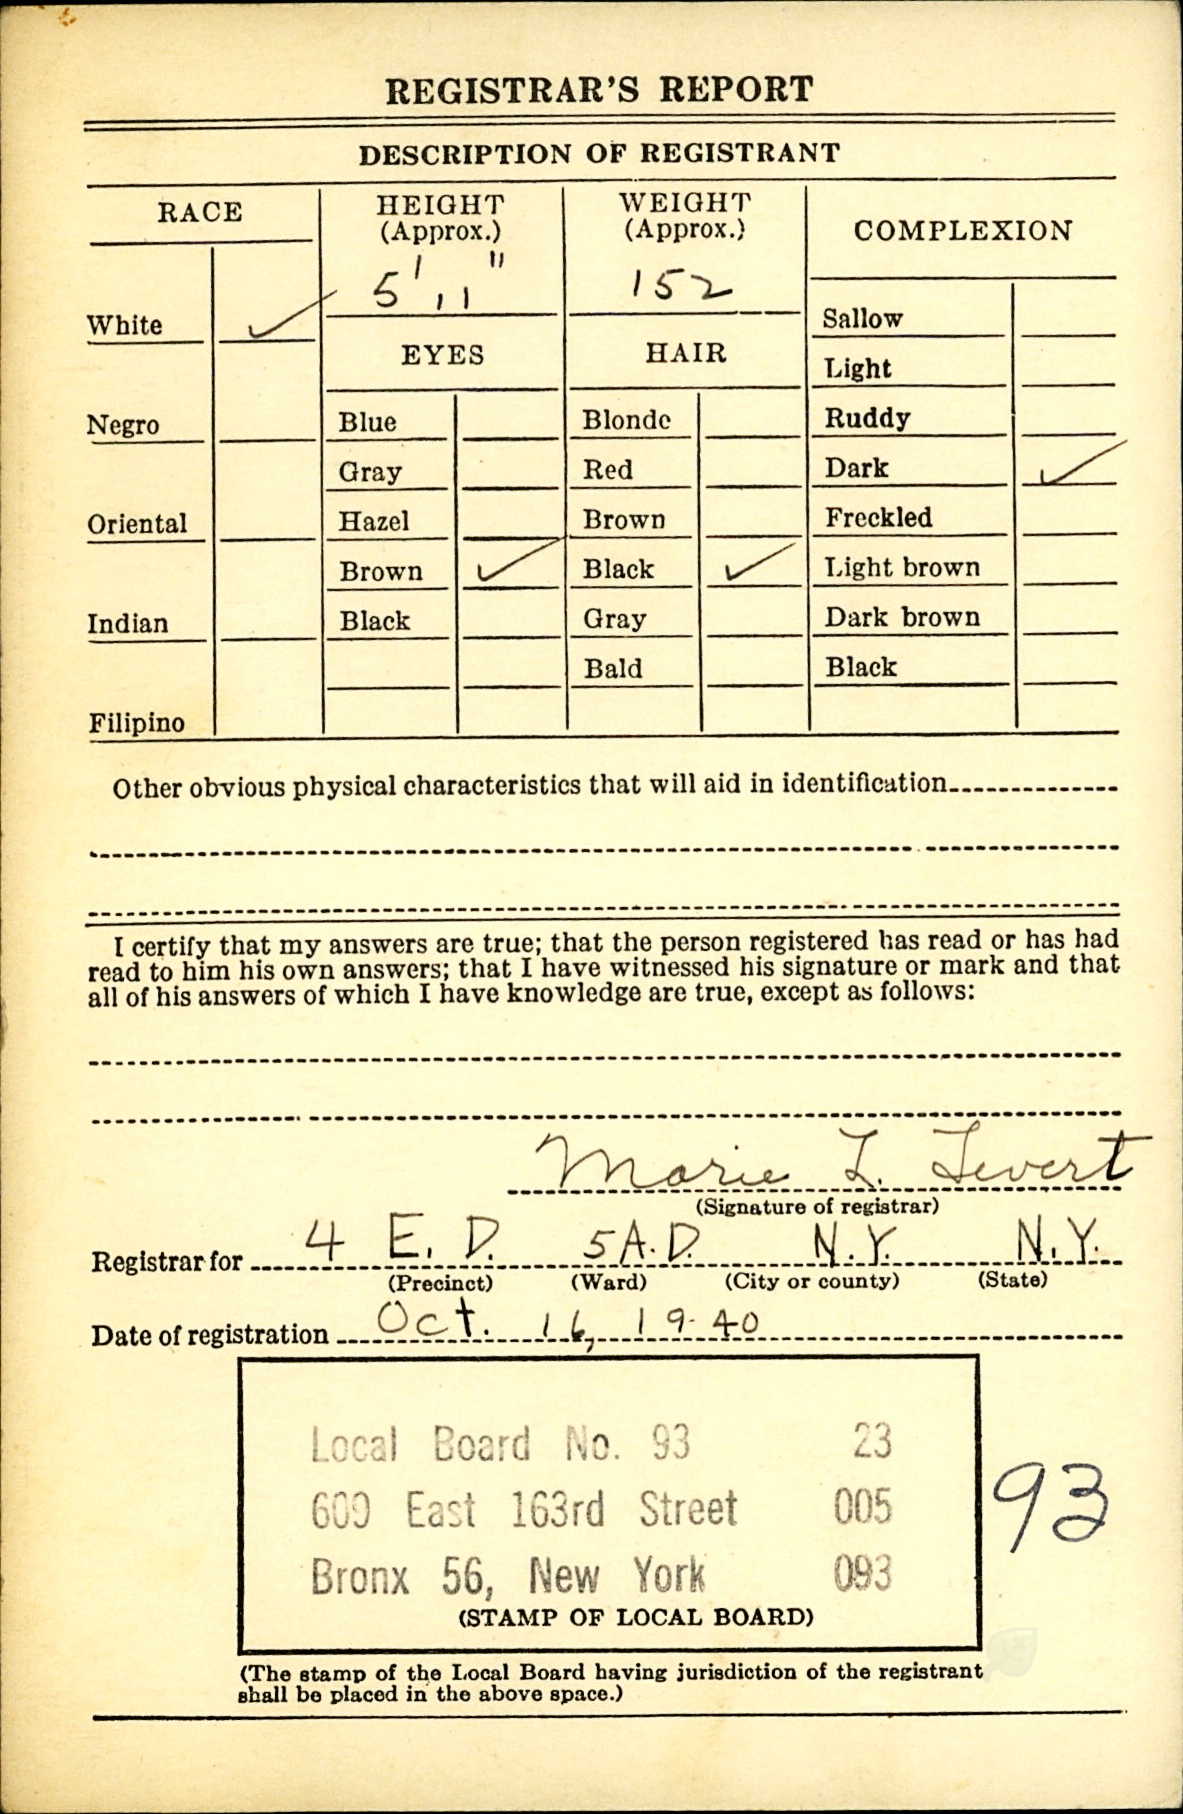 REGISTRAR'S REPORT
DESCRIPTION OF REGISTRANT
RACE
HEIGHT
(Approx.)
5' 11"
WEIGHT
(Approx.)
152
COMPLEXION
White ✓
Negro
Oriental
Indian
Filipino
EYES
Blue
Gray
Hazel
Brown ✓
Black
HAIR
Blonde
Red
Brown
Black ✓
Gray
Bald
Sallow
Light
Ruddy
Dark ✓
Freckled
Light brown
Dark brown
Black
Other obvious physical characteristics that will aid in identification
I certify that my answers are true; that the person registered has read or has had
read to him his own answers; that I have witnessed his signature or mark and that
all of his answers of which I have knowledge are true, except as follows:
Marie L. Levert
(Signature of registrar)
Registrar for 4 E. D. 5 A.D. N.Y. N.Y.
(Precinct) (Ward) (City or county) (State)
Date of registration Oct. 16, 1940
Local Board No. 93 23
609 East 163rd Street 005
Bronx 56, New York 093
(STAMP OF LOCAL BOARD)
93
(The stamp of the Local Board having jurisdiction of the registrant
shall be placed in the above space.)